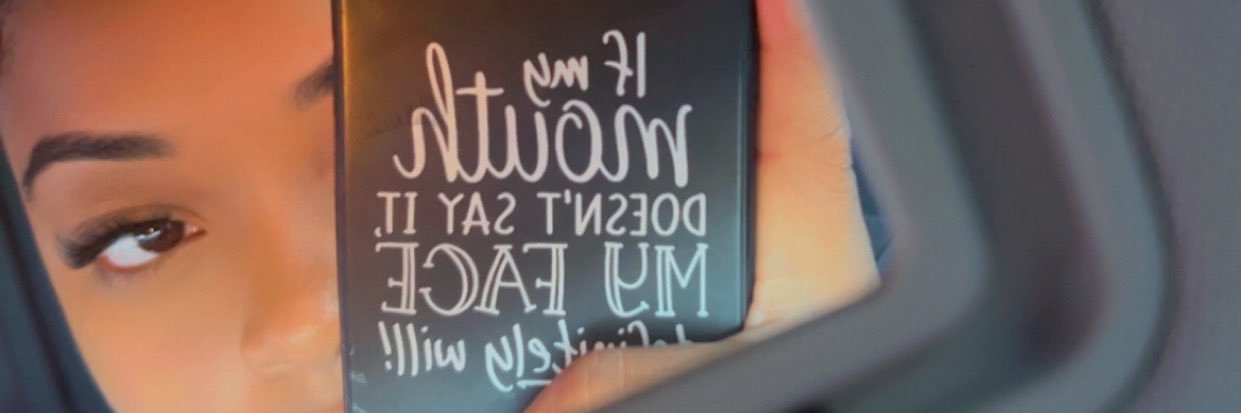 If my
mouth
DOESN'T SAY IT,
MY FACE
definitely will!